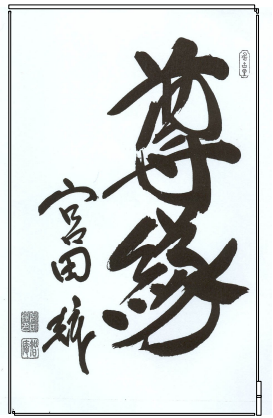 尊縁
宮田輝